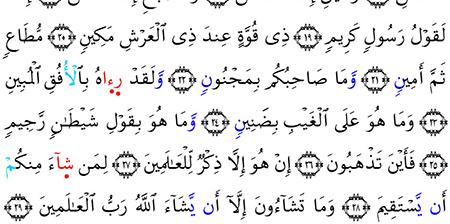 لَقَوْلُ رَسُولٖ كَرِيمٖ ﴿١٩﴾ ذِى قُوَّةٍ عِندَ ذِى ٱلْعَرْشِ مَكِينٖ ﴿٢٠﴾ مُطَاعٖ
ثَمَّ أَمِينٖ ﴿٢١﴾ وَمَا صَاحِبُكُم بِمَجْنُونٖ ﴿٢٢﴾ وَلَقَدْ رِءِاهُ بِٱلْأُفُقِ ٱلْمُبِينِ
﴿٢٣﴾ وَمَا هُوَ عَلَى ٱلْغَيْبِ بِضَنِينٖ ﴿٢٤﴾ وَمَا هُوَ بِقَوْلِ شَيْطَٰنٖ رَّجِيمٖ
﴿٢٥﴾ فَأَيْنَ تَذْهَبُونَ ﴿٢٦﴾ إِنْ هُوَ إِلَّا ذِكْرٌ لِّلْعَٰلَمِينَ ﴿٢٧﴾ لِمَن شِآءَ مِنكُمْ
أَن يَّسْتَقِيمَ ﴿٢٨﴾ وَمَا تَشَآءُونَ إِلَّآ أَن يَّشَآءَ ٱللَّهُ رَبُّ ٱلْعَٰلَمِينَ ﴿٢٩﴾